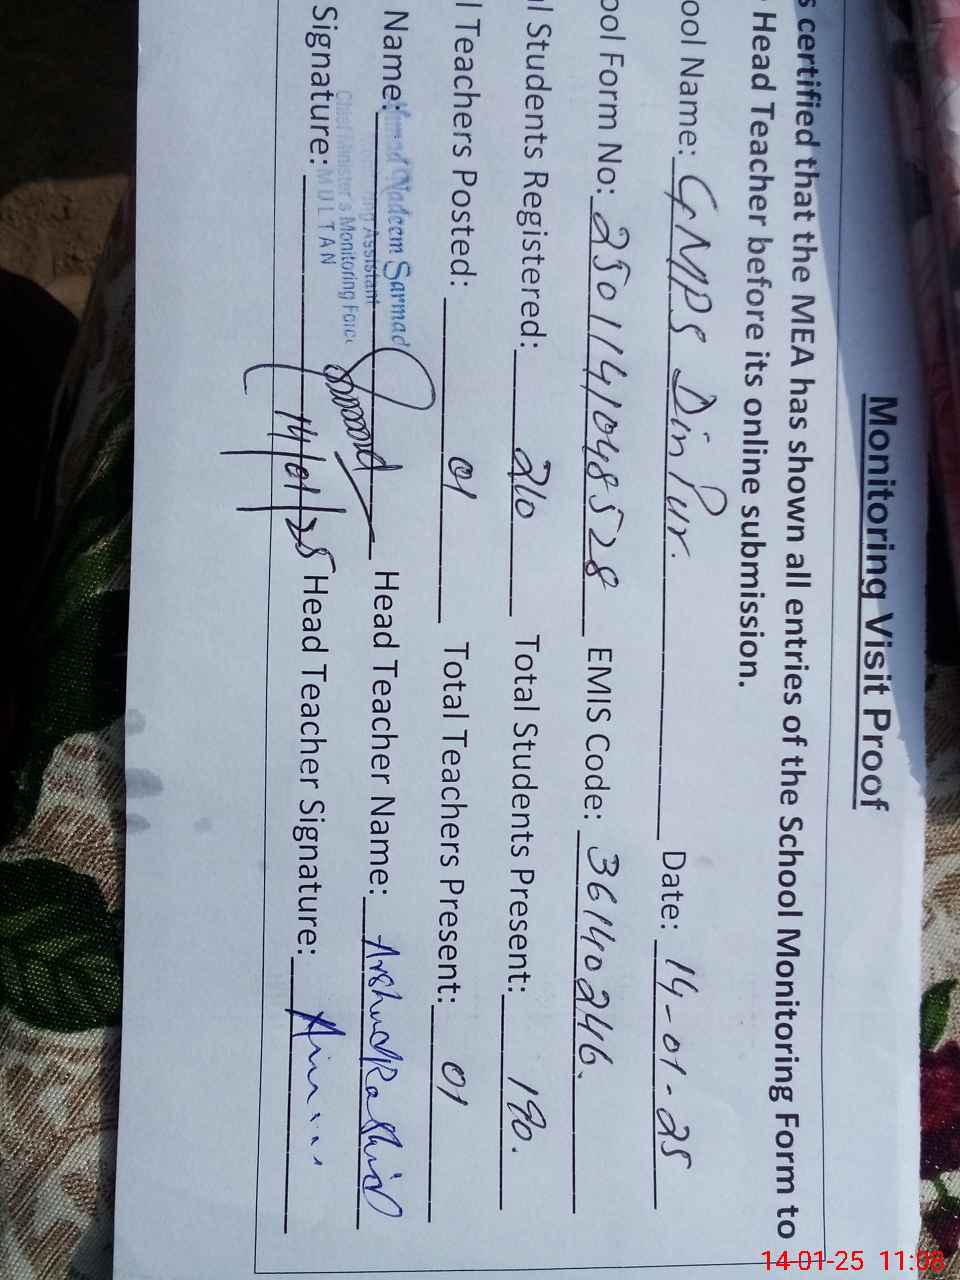 Monitoring Visit Proof
s certified that the MEA has shown all entries of the School Monitoring Form to
Head Teacher before its online submission.
ool Name: GMPS Din Pur. Date: 14-01-25
ool Form No: 2501141048528 EMIS Code: 36140246.
l Students Registered: 210 Total Students Present: 190.
l Teachers Posted: 01 Total Teachers Present: 01
Name: Nadeem Sarmad Head Teacher Name: Arshad Rashid
ing Assistant
Chief Minister's Monitoring Force
Signature: MULTAN 14/01/25 Head Teacher Signature:
14-01-25 11:08